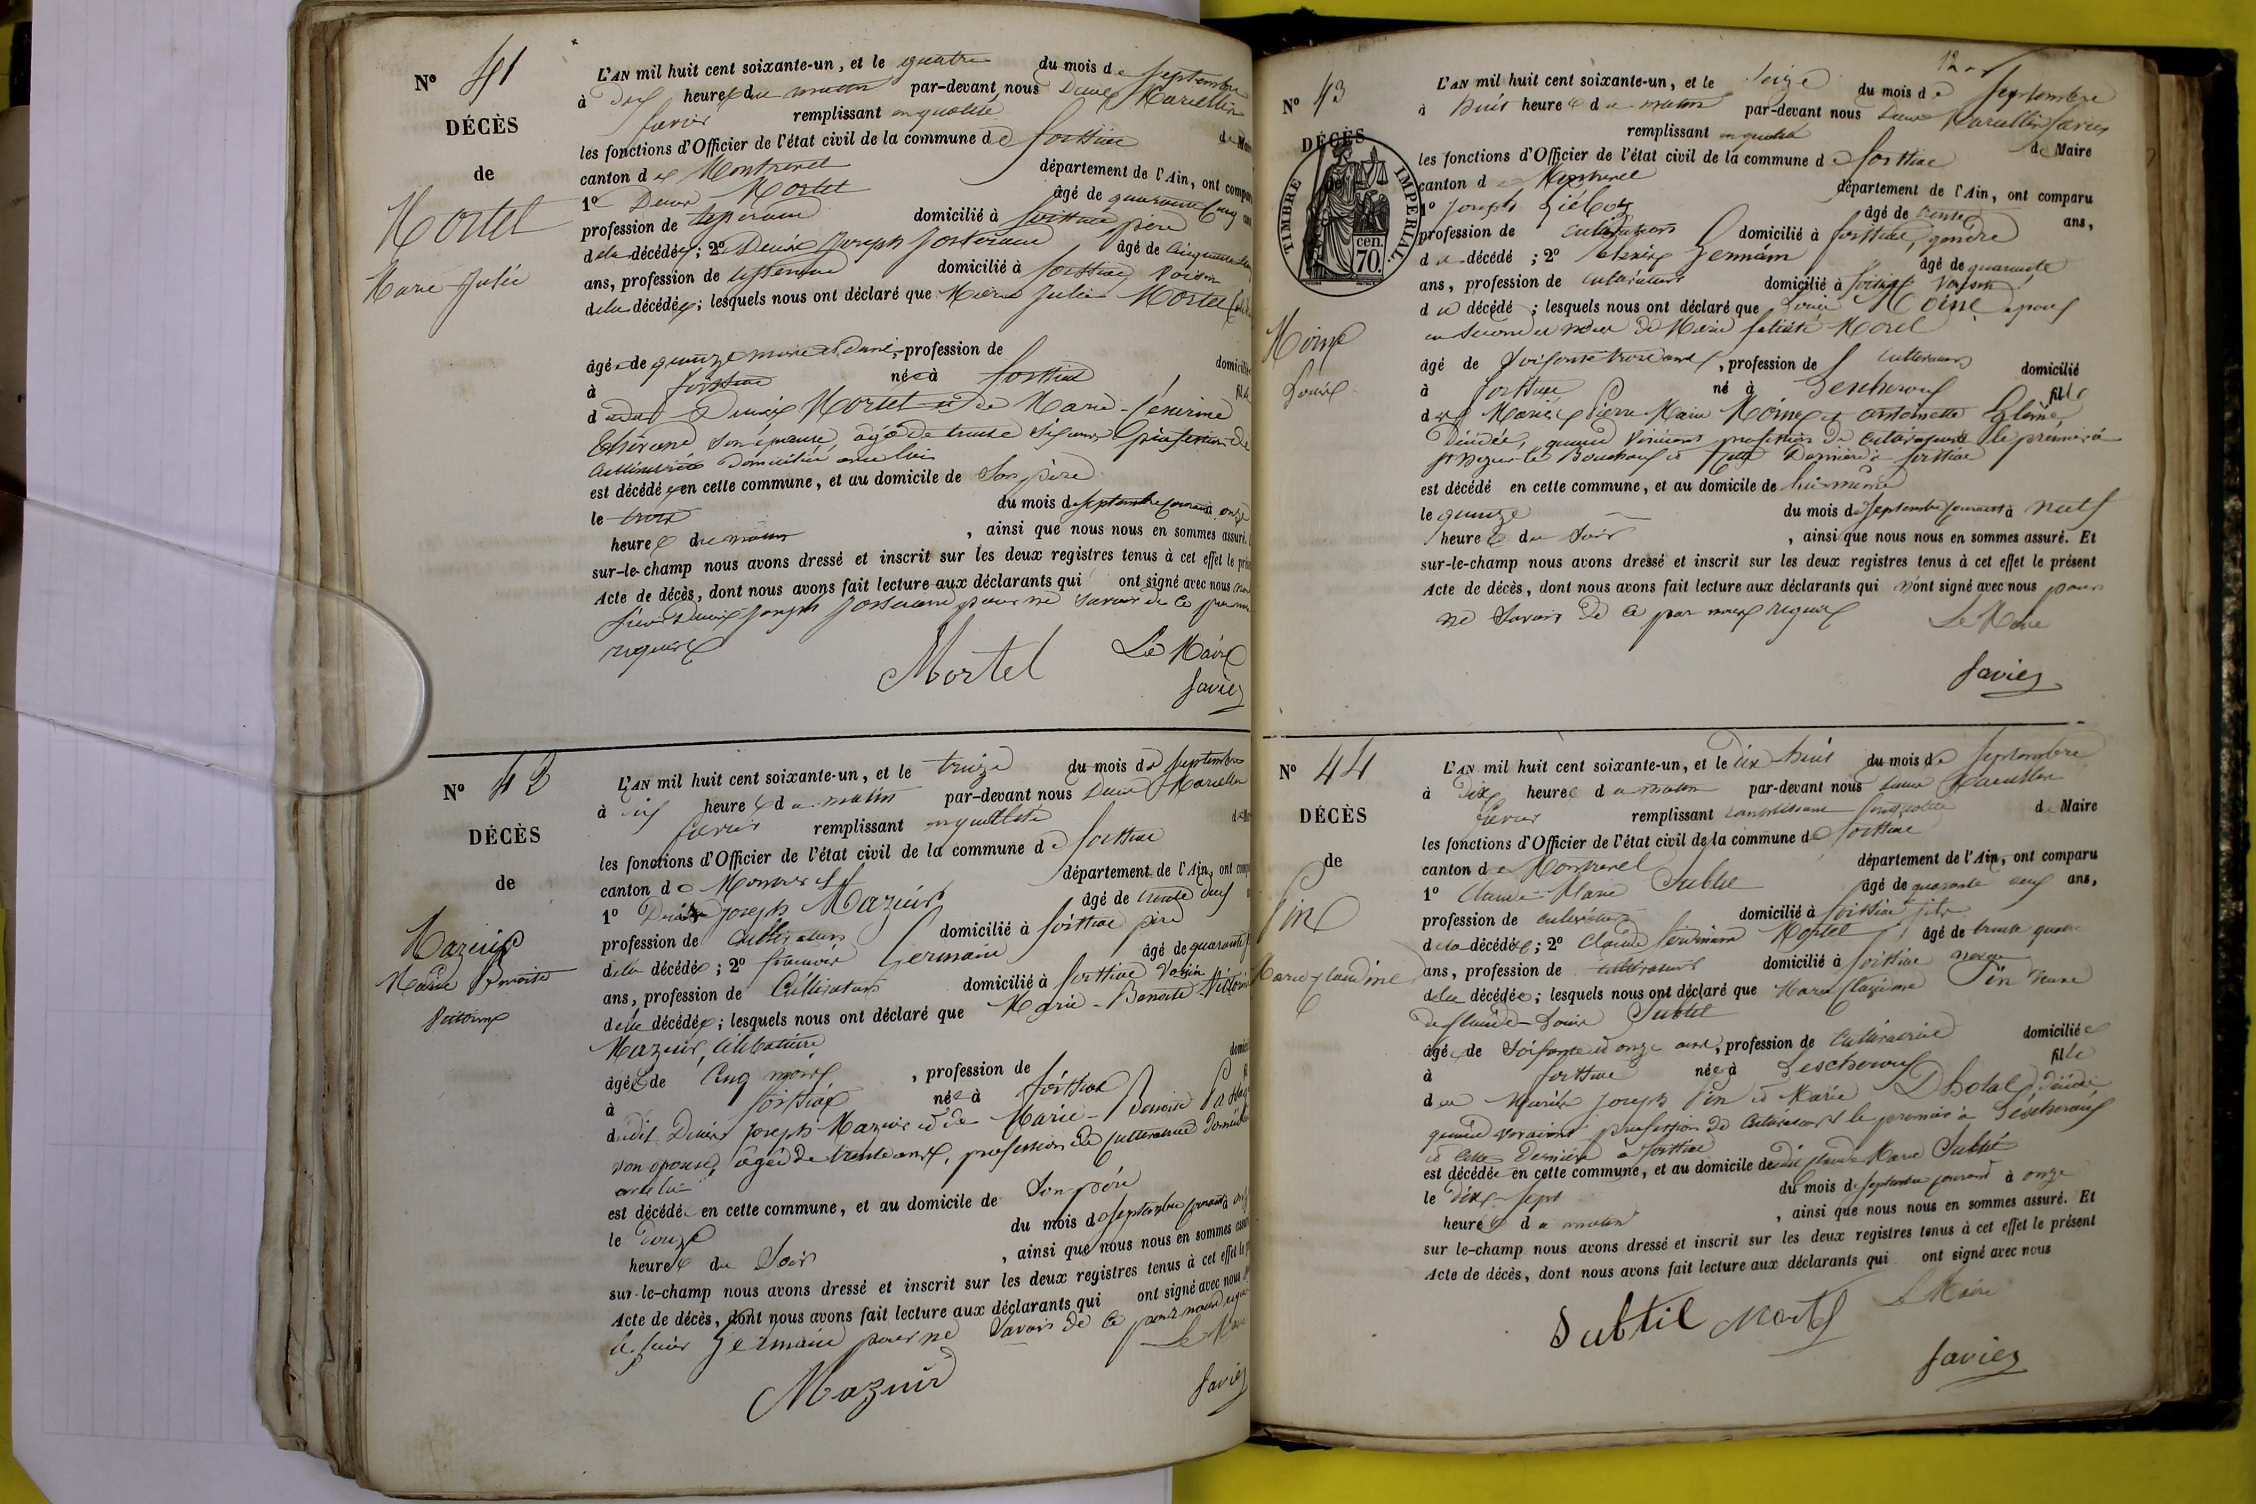 N° 41
DÉCÈS
de
Mortel
Marie Julie
L'AN mil huit cent soixante-un, et le quatre du mois de Septembre
à dix heures du matin par-devant nous Denis Marcellin
favier remplissant en qualité
les fonctions d'Officier de l'état civil de la commune de foissiat de Maire
canton de Montrevel département de l'Ain, ont compa
1° Denis Mortel âgé de quarante cinq ans
profession de domicilié à foissiat père
de la décédée; 2° Denis Joseph âgé de cinquante
ans, profession de domicilié à foissiat voisin
de la décédée; lesquels nous ont déclaré que Marie Julie Mortel
âgée de quinze mois et demi, profession de domiciliée
à foissiat née à foissiat fille
dudit Denis Mortel et de Marie
son épouse, âgée de trente six ans profession de
cultivatrice domiciliée avec lui
est décédée en cette commune, et au domicile de Son père
le trois du mois de septembre courant à onze
heures du matin, ainsi que nous nous en sommes assuré.
sur-le-champ nous avons dressé et inscrit sur les deux registres tenus à cet effet le prés
Acte de décès, dont nous avons fait lecture aux déclarants qui ont signé avec nous non
Denis Joseph pour ne savoir de ce par nous
requis
Mortel Le Maire
favier
N° 42
DÉCÈS
de
Mazuir
Marie Benoite
Victorine
L'AN mil huit cent soixante-un, et le treize du mois de Septembre
à six heures du matin par-devant nous Denis Marcellin
favier remplissant en qualité
les fonctions d'Officier de l'état civil de la commune de foissiat
canton de Montrevel département de l'Ain, ont comp
1° Denis Joseph Mazuir âgé de trente neuf
profession de cultivateur domicilié à foissiat père
de la décédée; 2° françois Germain âgé de quarante
ans, profession de Cultivateur domicilié à foissiat voisin
de la décédée; lesquels nous ont déclaré que Marie-Benoite-Victorine
Mazuir, célibataire
âgée de cinq mois, profession de
à foissiat née à foissiat
dudit Denis Joseph Mazuir et de Marie-Benoite
son épouse, âgée de trente ans, profession de cultivatrice
avec lui
est décédée en cette commune, et au domicile de Son père
le douze du mois de septembre courant à
heures du Soir, ainsi que nous nous en sommes assu
sur-le-champ nous avons dressé et inscrit sur les deux registres tenus à cet effet le
Acte de décès, dont nous avons fait lecture aux déclarants qui ont signé avec nous
Germain pour ne savoir de ce par nous
Le Maire
Mazuir
favier
12
N° 43
DÉCÈS
TIMBRE IMPERIAL
70 cen.
Moine
Louis
L'AN mil huit cent soixante-un, et le Seize du mois de Septembre
à huit heures du matin par-devant nous Denis Marcellin favier
remplissant en qualité de Maire
les fonctions d'Officier de l'état civil de la commune de foissiat
canton de Montrevel département de l'Ain, ont comparu
1° Joseph âgé de trente ans,
profession de cultivateur domicilié à foissiat, gendre
du décédé; 2° Germain âgé de quarante
ans, profession de cultivateur domicilié à foissiat voisin
du décédé; lesquels nous ont déclaré que Louis Moine époux
en Seconde noce de Marie Morel
âgé de Soixante trois ans, profession de cultivateur domicilié
à foissiat né à Lescheroux fils
des Mariés Pierre Marie Moine et Antoinette
quand vivaient profession de cultivateurs le premier à
St et cette Dernière à foissiat
est décédé en cette commune, et au domicile de lui même
le quinze du mois de septembre courant à neuf
heures du Soir, ainsi que nous nous en sommes assuré. Et
sur-le-champ nous avons dressé et inscrit sur les deux registres tenus à cet effet le présent
Acte de décès, dont nous avons fait lecture aux déclarants qui n'ont signé avec nous pour
ne Savoir de ce par nous requis
Le Maire
favier
N° 44
DÉCÈS
de
Pin
Marie Claudine
L'AN mil huit cent soixante-un, et le dix huit du mois de Septembre
à dix heures du matin par-devant nous Denis Marcellin
favier remplissant de Maire
les fonctions d'Officier de l'état civil de la commune de foissiat
canton de Montrevel département de l'Ain, ont comparu
1° Claude-Marie Subtil âgé de quarante neuf ans,
profession de cultivateur domicilié à foissiat fils
de la décédée; 2° Claude Ferdinand Mortel âgé de trente quatre
ans, profession de cultivateur domicilié à foissiat
de la décédée; lesquels nous ont déclaré que Marie Claudine Pin veuve
de Claude-Louis Subtil
âgée de Soixante et onze ans, profession de cultivatrice domiciliée
à foissiat née à Lescheroux fille
des Mariés Joseph Pin et Marie
quand vivaient profession de cultivateurs le premier à Lescheroux
et cette Dernière à foissiat
est décédée en cette commune, et au domicile dudit Claude Marie Subtil
le dix-sept du mois de septembre courant à onze
heures du matin, ainsi que nous nous en sommes assuré. Et
sur le-champ nous avons dressé et inscrit sur les deux registres tenus à cet effet le présent
Acte de décès, dont nous avons fait lecture aux déclarants qui ont signé avec nous
Subtil Mortel Le Maire
favier